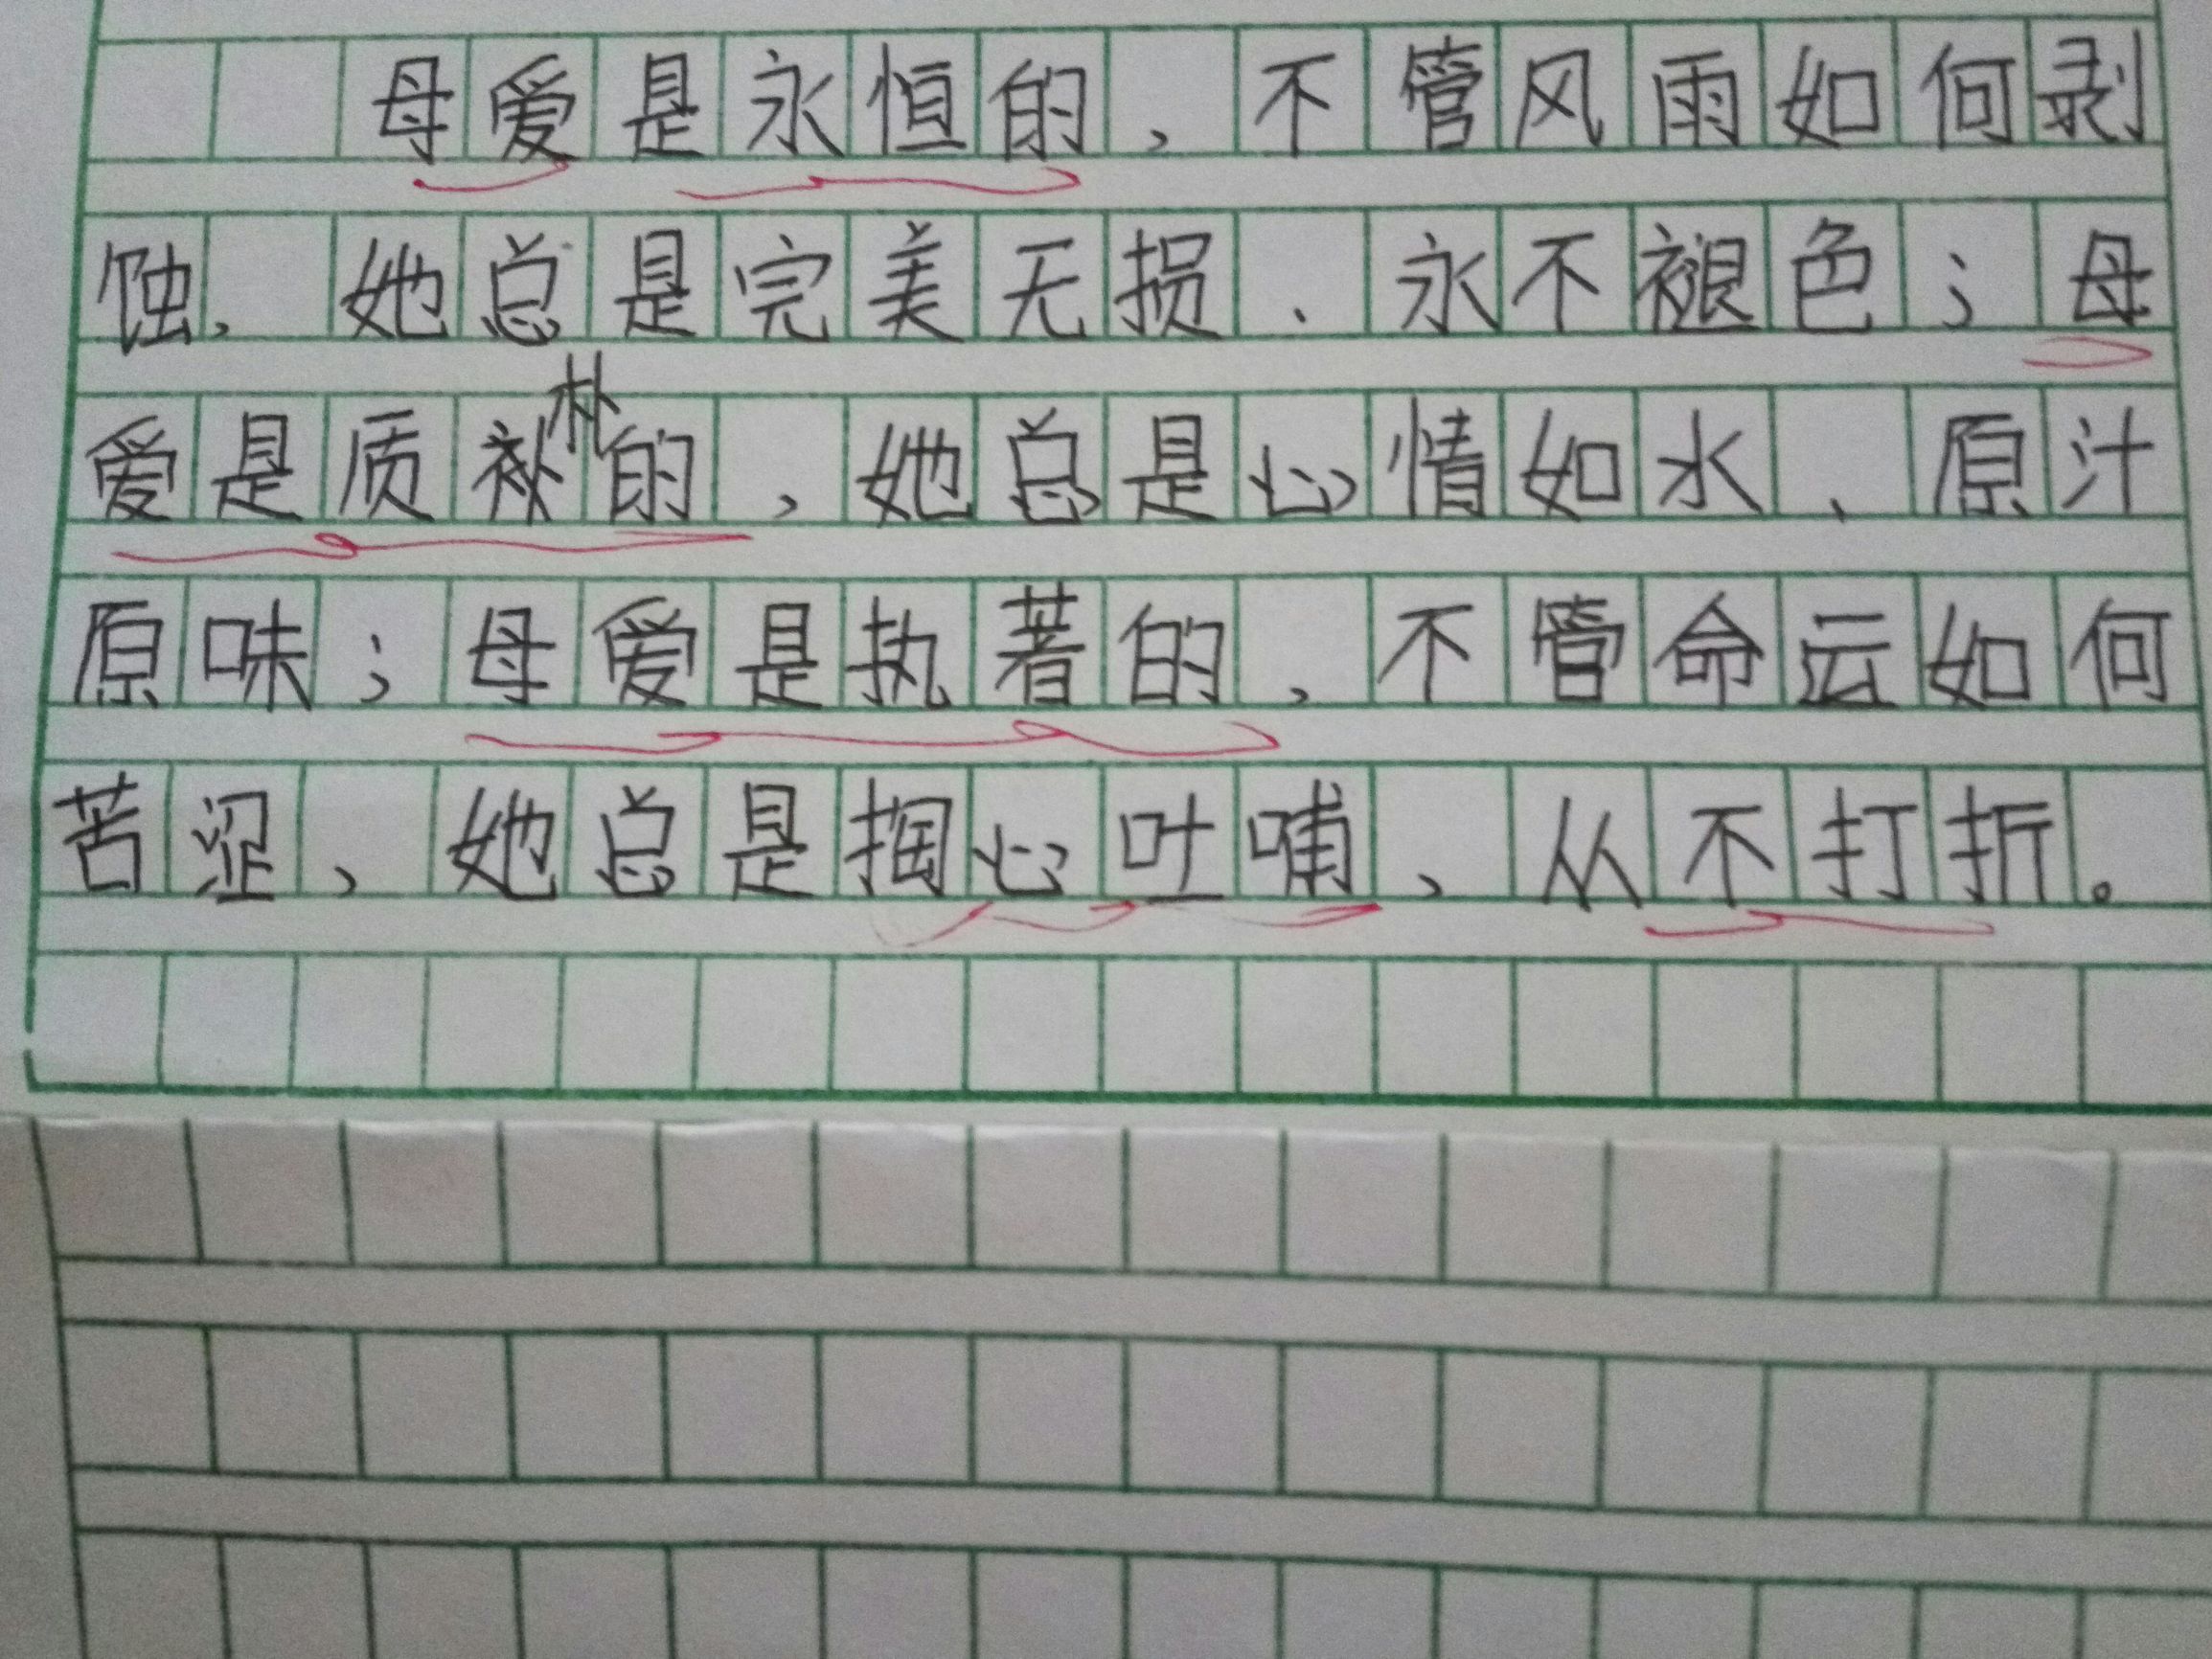 母爱是永恒的，不管风雨如何剥
蚀，她总是完美无损、永不褪色；母
爱是质朴的，她总是心情如水、原汁
原味；母爱是执着的，不管命运如何
苦涩，她总是掏心吐哺，从不打折。